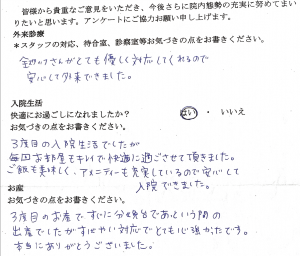 皆様から貴重なご意見をいただき、今後さらに院内態勢の充実に努めてまい
りたいと思います。アンケートにご協力お願い申し上げます。
外来診療
＊スタッフの対応、待合室、診察室等お気づきの点をお書きください。
さんがとても優しく対応してくれるので
安心して外来できました。
入院生活
快適にお過ごしになれましたか？ はい ・ いいえ
お気づきの点をお書きください。
3度目の入院生活でしたが
毎回お部屋もキレイで快適に過ごさせて頂きました。
ご飯も美味しく、アメニティーも充実しているので安心して
入院できました。
お産
お気づきの点をお書きください。
3度目のお産ですぐに分娩台であっという間の
出産でしたがすばやい対応でとても心強かったです。
本当にありがとうございました。